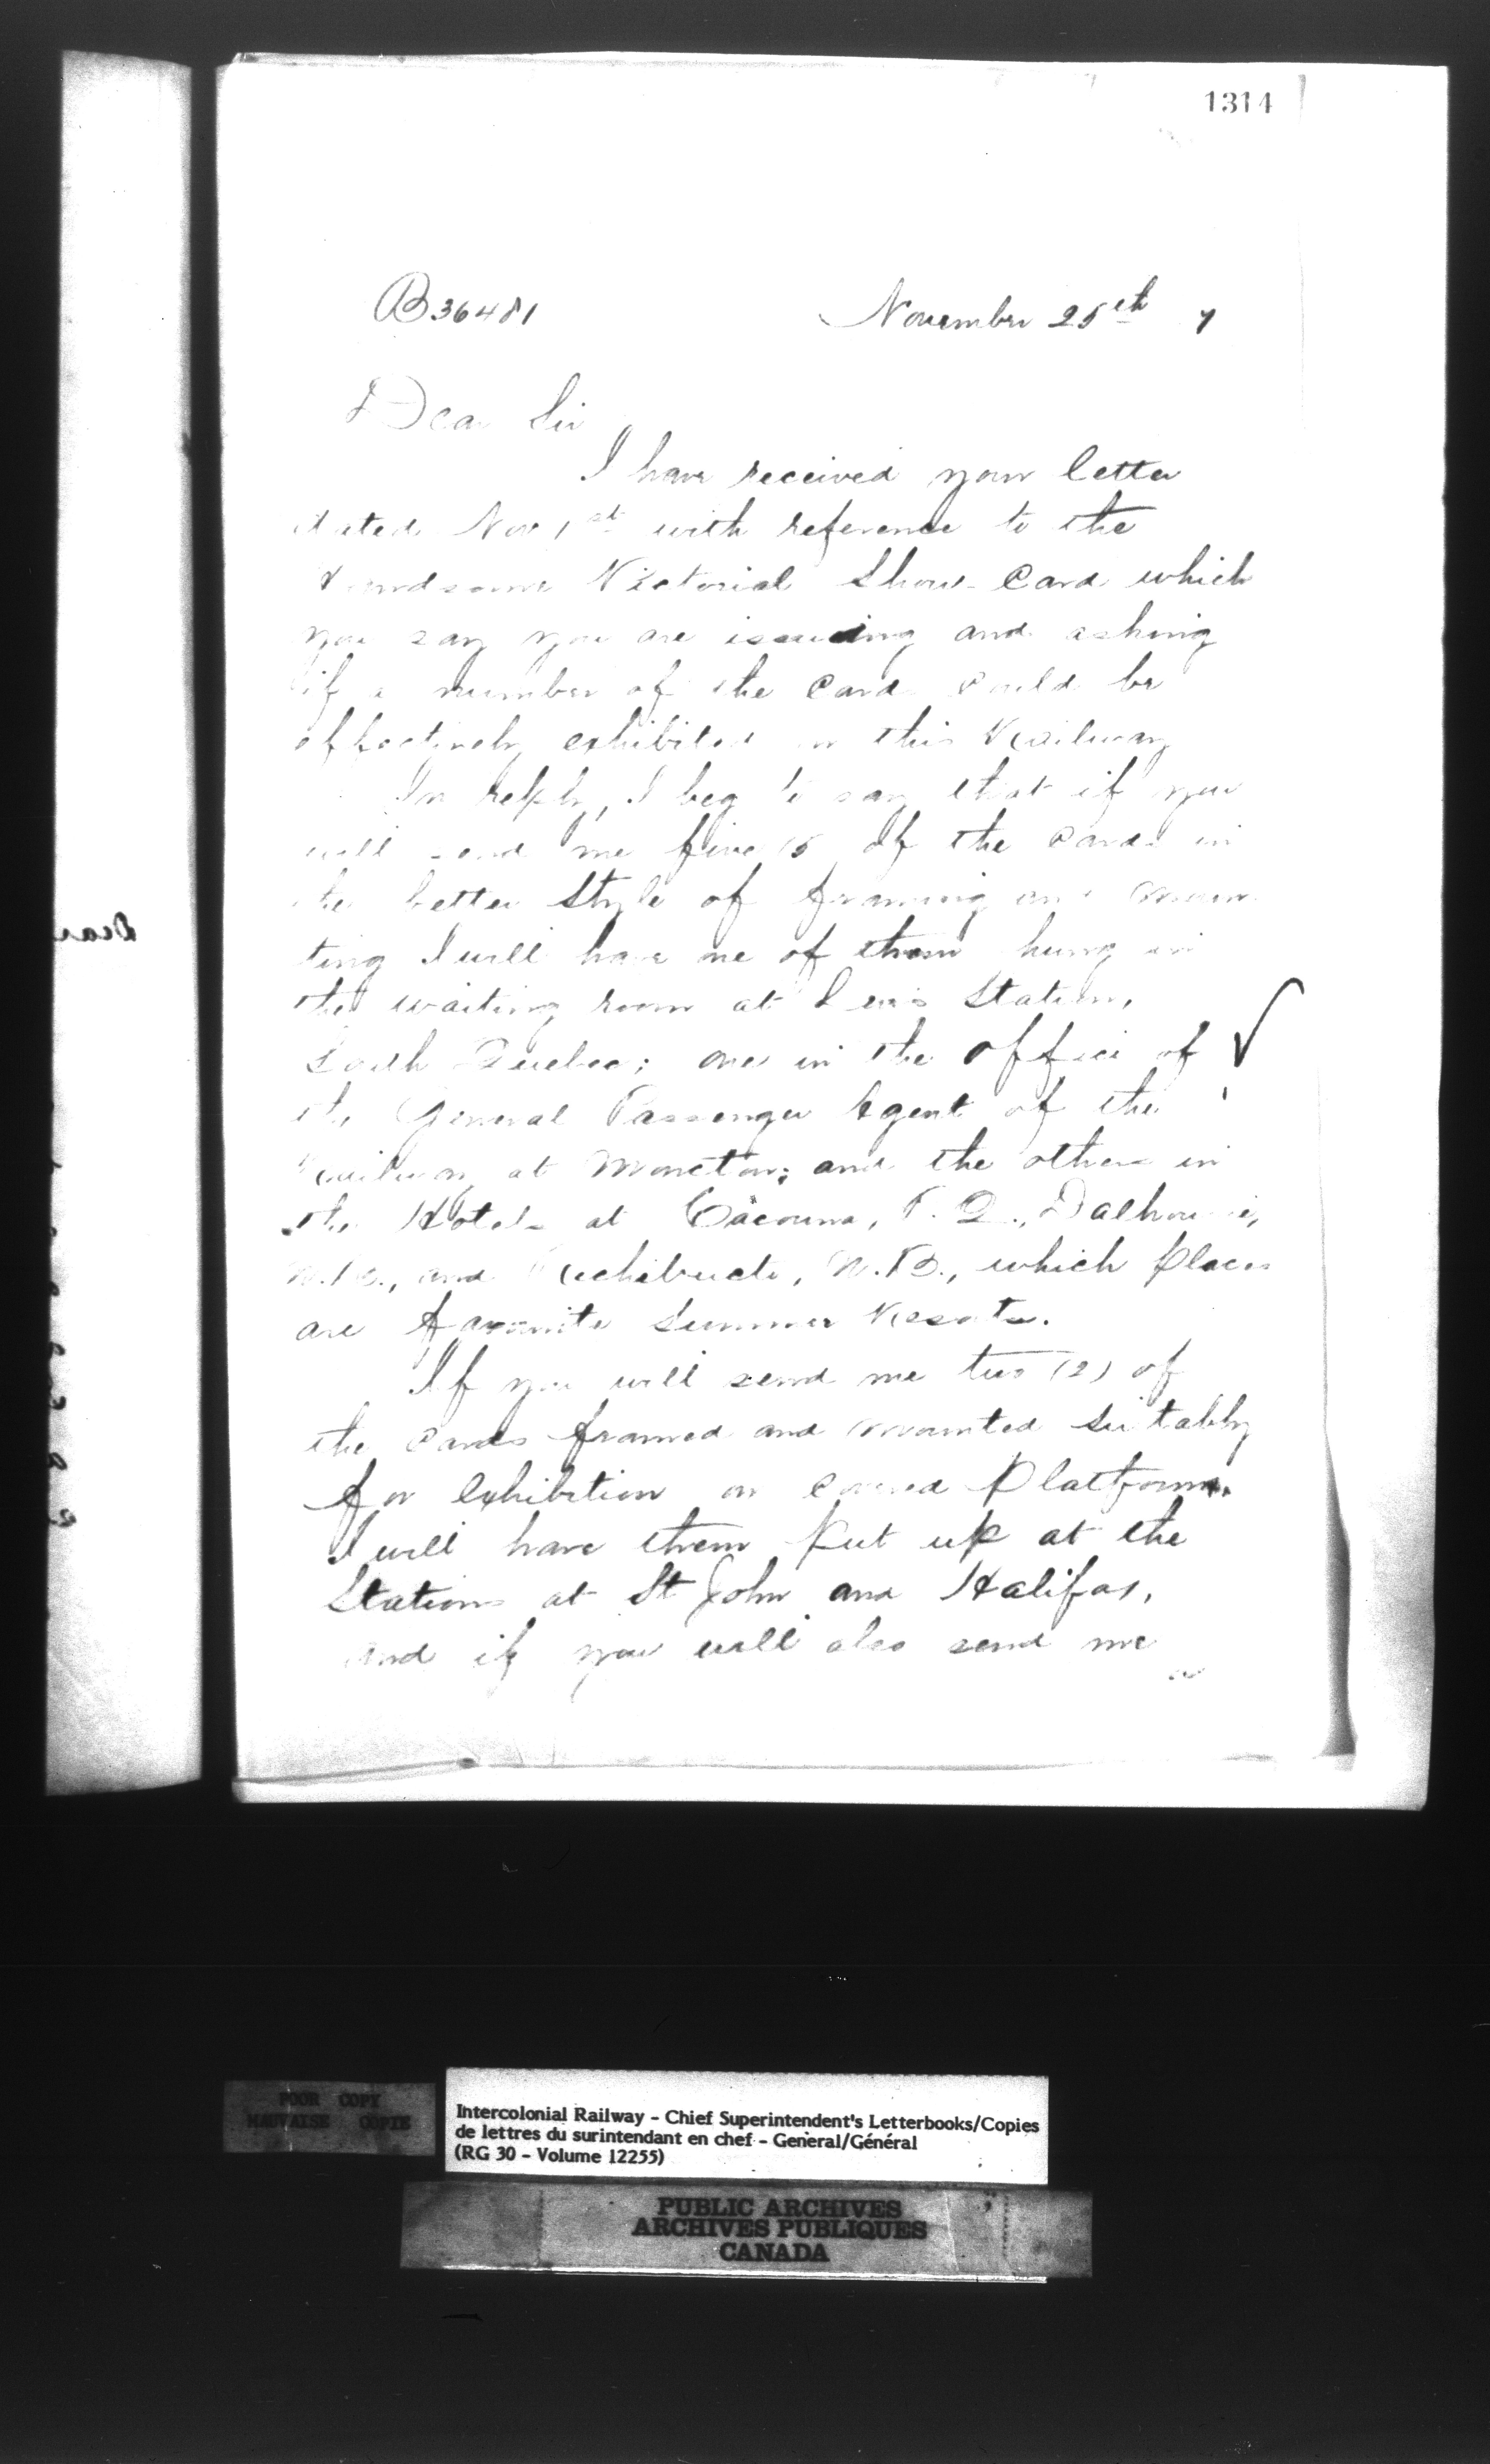 1314
B 36481 November 25th 7
Dear Sir
I have received your letter
dated Nov 1st with reference to the
Handsome Pictorial Show-Card which
you say you are issuing and asking
if a number of the Card could be
effectively exhibited on this Railway
In reply, I beg to say that if you
will send me five (5 of the Cards in
the better Style of framing and moun
ting I will have one of them hung in
the waiting room at Levis Station,
South Quebec; one in the office of
the General Passenger Agent of the
Railway at Moncton; and the others in
the Hotels at Cacouna, P.Q., Dalhousie,
N.B., and Richibucto, N.B., which places
are favorite Summer Resorts.
If you will send me two (2) of
the Cards framed and mounted suitably
for exhibition on covered Platforms.
I will have them put up at the
Stations at St John and Halifax,
and if you will also send me
Dear
POOR COPY
MAUVAISE COPIE
Intercolonial Railway - Chief Superintendent's Letterbooks/Copies
de lettres du surintendant en chef - General/Général
(RG 30 - Volume 12255)
PUBLIC ARCHIVES
ARCHIVES PUBLIQUES
CANADA